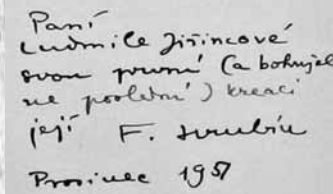 Paní
Ludmile Jiřincové
svou první (a bohužel
ne poslední) kreaci
její F. Hrubín
Prosinec 1951